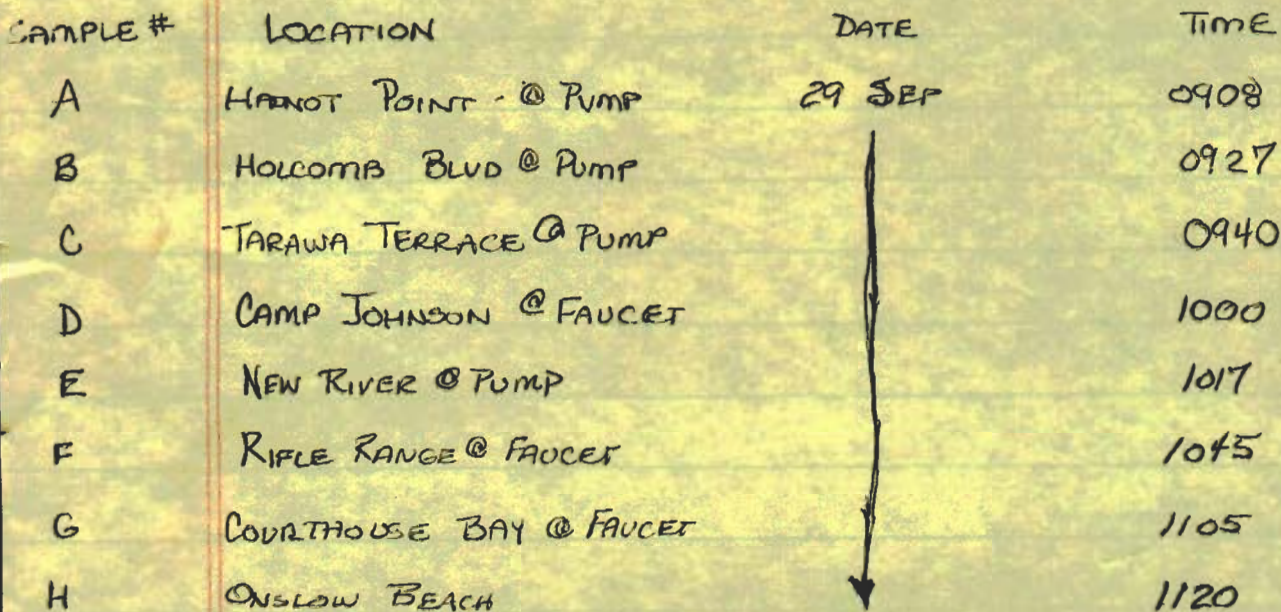 SAMPLE # LOCATION DATE TIME
A HADNOT POINT - @ PUMP 29 SEP 0908
B HOLCOMB BLVD @ PUMP 0927
C TARAWA TERRACE @ PUMP 0940
D CAMP JOHNSON @ FAUCET 1000
E NEW RIVER @ PUMP 1017
F RIFLE RANGE @ FAUCET 1045
G COURTHOUSE BAY @ FAUCET 1105
H ONSLOW BEACH 1120